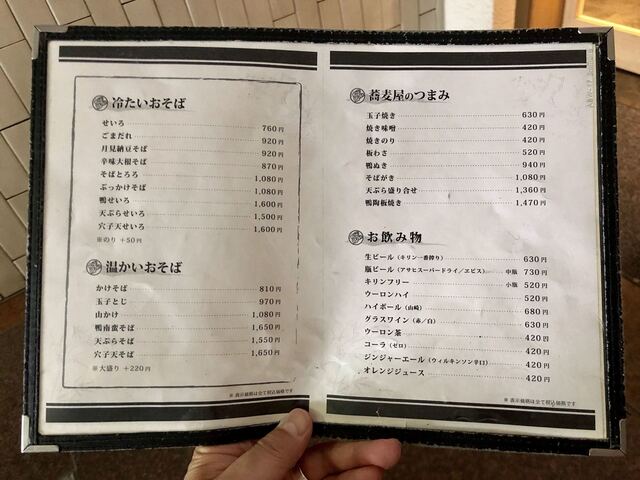 冷たいおそば
せいろ 760円
ごまだれ 920円
月見納豆そば 920円
辛味大根そば 870円
そばとろろ 1,080円
ぶっかけそば 1,080円
鴨せいろ 1,600円
天ぷらせいろ 1,500円
穴子天せいろ 1,600円
※のり +50円
温かいおそば
かけそば 810円
玉子とじ 970円
山かけ 1,080円
鴨南蛮そば 1,650円
天ぷらそば 1,550円
穴子天そば 1,650円
※大盛り +220円
※表示価格は全て税込価格です
蕎麦屋のつまみ
玉子焼き 630円
焼き味噌 420円
焼きのり 420円
板わさ 520円
鴨ぬき 940円
そばがき 1,080円
天ぷら盛り合せ 1,360円
鴨陶板焼き 1,470円
お飲み物
生ビール(キリン一番搾り) 630円
瓶ビール(アサヒスーパードライ/ヱビス) 中瓶 730円
キリンフリー 小瓶 520円
ウーロンハイ 520円
ハイボール(山崎) 680円
グラスワイン(赤/白) 630円
ウーロン茶 420円
コーラ(ゼロ) 420円
ジンジャーエール(ウィルキンソン辛口) 420円
オレンジジュース 420円
※表示価格は全て税込価格です